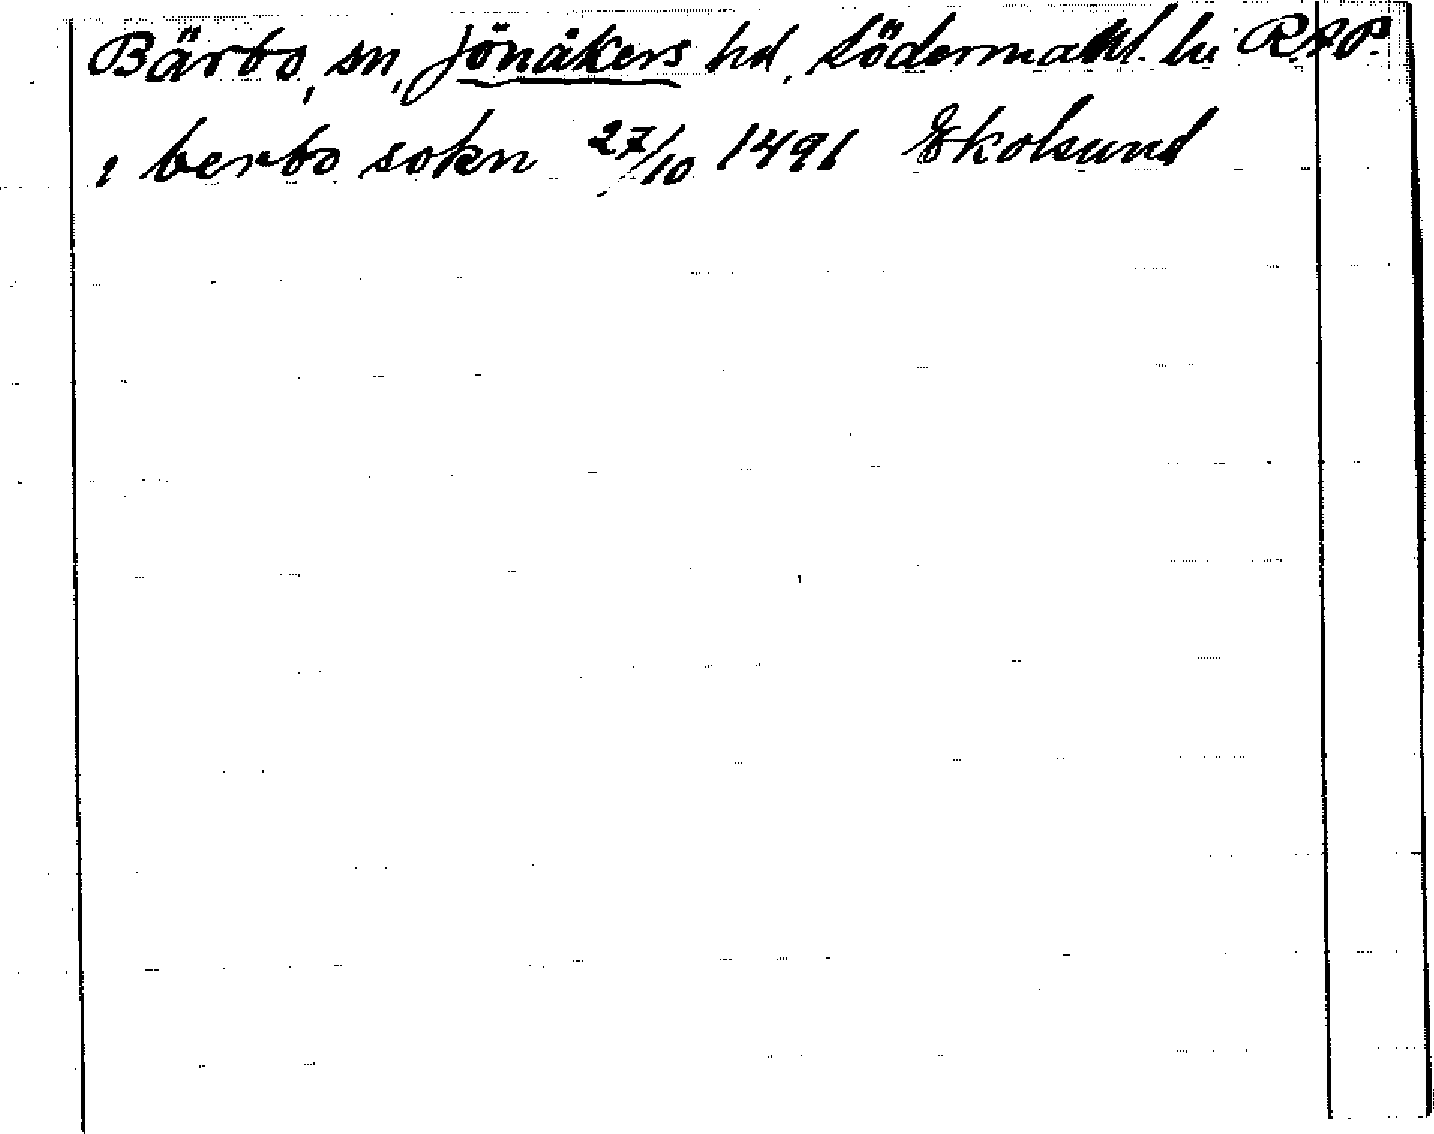 Bärbo, sn, Jönåkers hd, Södermanl. lu RAP.
i berbo sokn 27/10 1491 Ekolsund